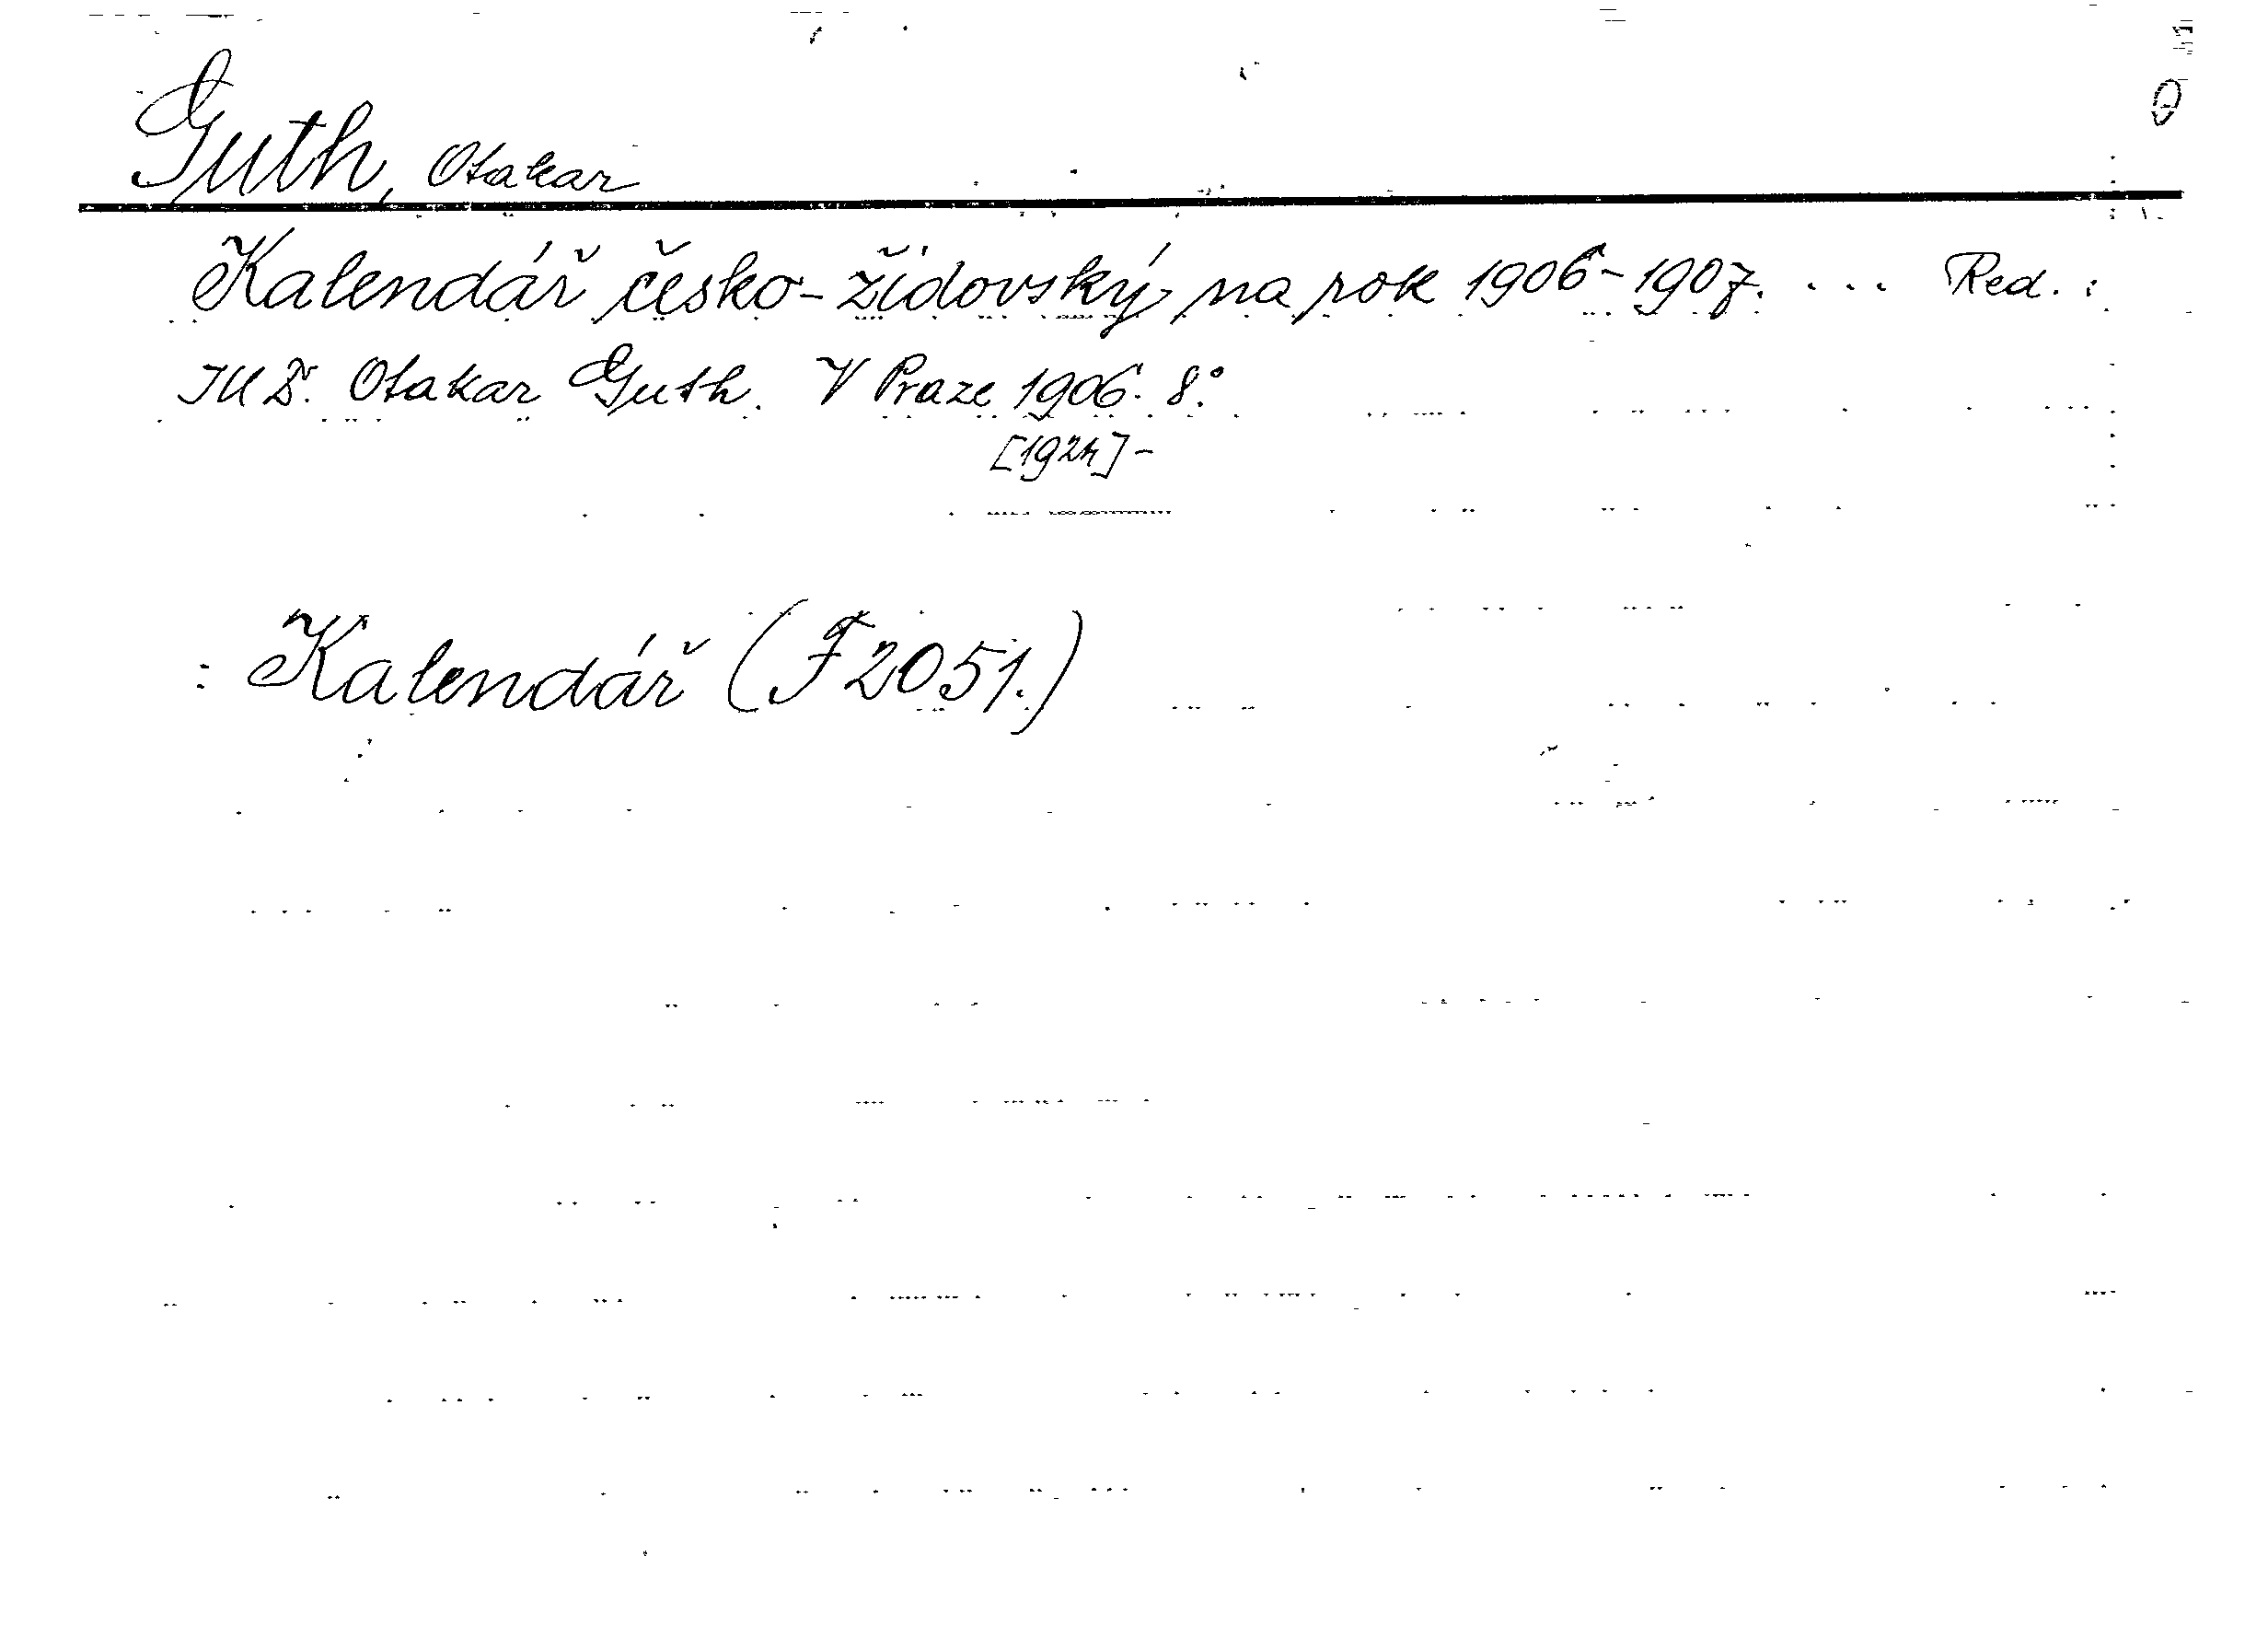 Guth, Otakar
Kalendář česko-židovský na rok 1906-1907. ... Red.:
JUDr. Otakar Guth. V Praze 1906. 8.°
: Kalendář (F 2051.)